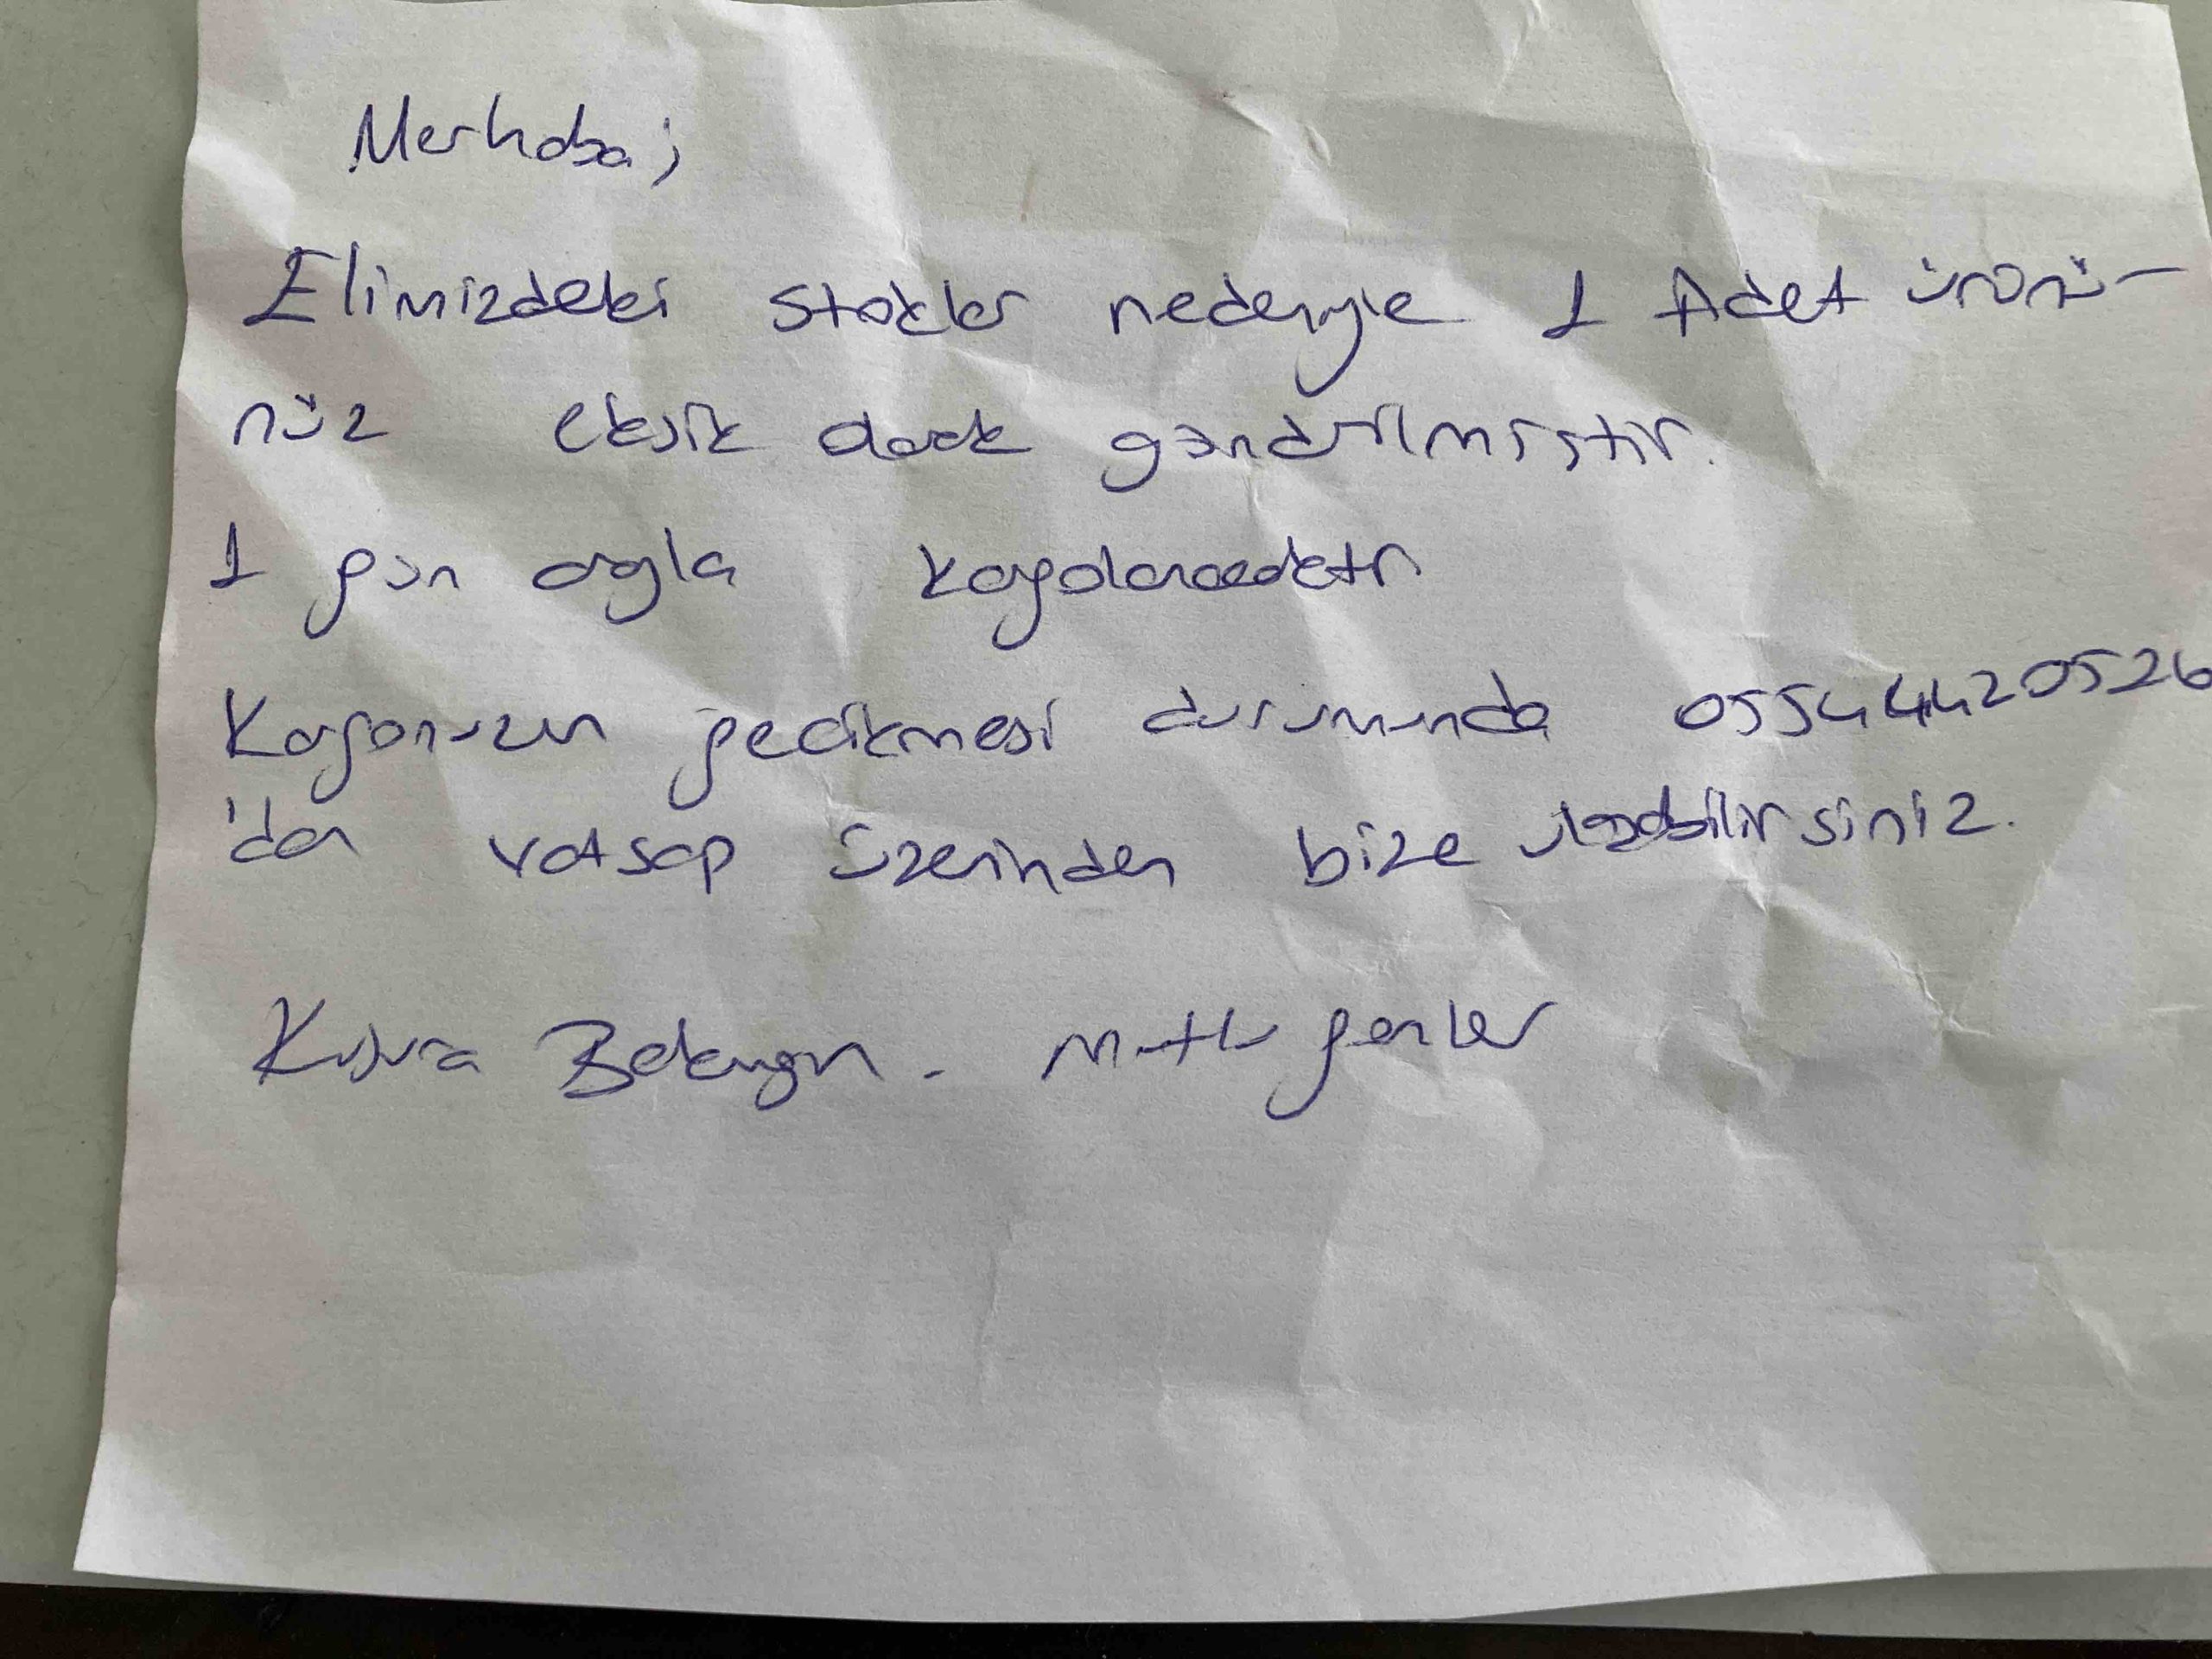 Merhaba;
Elimizdeki stoklar nedeniyle 1 Adet ürünü-
nüz eksik olarak gönderilmiştir.
1 gün arayla kargolanacaktır
Kargonuzun gecikmesi durumunda 05544420526
'dan vatsap üzerinden bize ulaşabilirsiniz.
Kusura Bakmayın. Mutlu günler